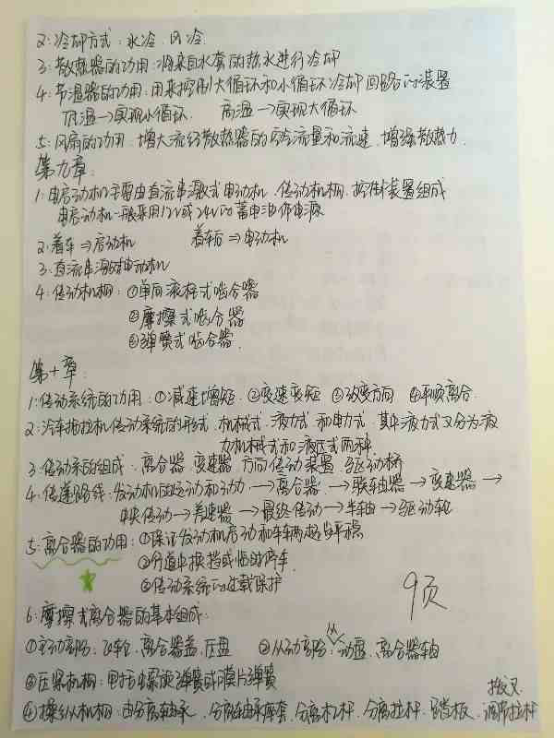 2. 冷却方式:水冷、风冷
3. 散热器的功用:将来自水套的热水进行冷却
4. 节温器的功用:用来控制大循环和小循环冷却回路的装置
低温→实现小循环 高温→实现大循环
5. 风扇的功用:增大流经散热器的空气流量和流速,增强散热力.
第九章:
1. 电启动机主要由直流串激式电动机、传动机构、控制装置组成
电启动机一般采用12V或24V的蓄电池作电源
2. 着车⇒启动机 着车后⇒电动机
3. 直流串激式电动机
4. 传动机构:①单向滚柱式啮合器
②摩擦式啮合器
③弹簧式啮合器.
第十章:
1. 传动系统的功用:①减速增矩 ②变速变矩 ③改变方向 ④平顺离合.
2. 汽车拖拉机传动系统的形式:机械式、液力式和电力式,其中液力式又分为液
力机械式和液压式两种.
3. 传动系的组成:离合器、变速器、万向传动装置、驱动桥
4. 传递路线:发动机的运动和动力→离合器→联轴器→变速器→
中央传动→差速器→最终传动→半轴→驱动轮
5. 离合器的功用:①保证发动机启动和车辆起步平稳
②分道中换挡或临时停车.
③传动系统的过载保护
9页
6. 摩擦式离合器的基本组成:
①主动部分:飞轮、离合器盖、压盘 ②从动部分:从动盘、离合器轴
③压紧机构:包括螺旋弹簧或膜片弹簧
拨叉
④操纵机构:由分离轴承、分离轴承座套、分离杠杆、分离拉杆、踏板、调节拉杆